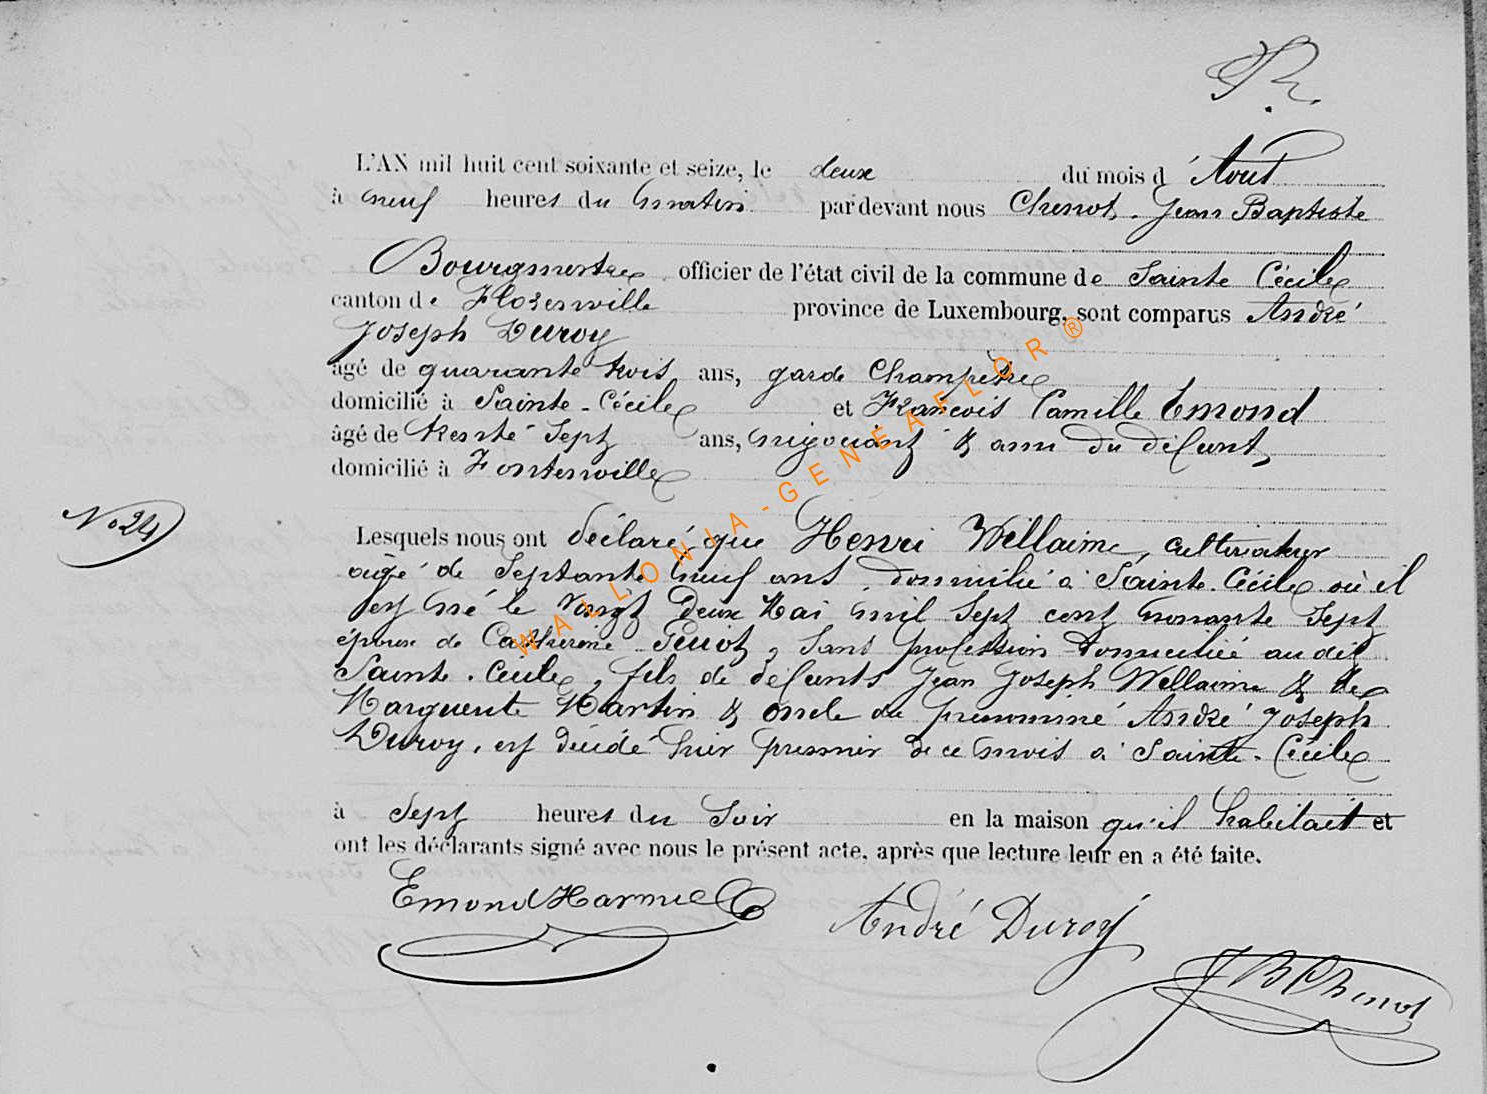 R.
L'AN mil huit cent soixante et seize, le deux du mois d'Aout
à neuf heures du matin par devant nous Chenot, Jean Baptiste
Bourgmestre officier de l'état civil de la commune de Sainte Cécile
canton de Florenville province de Luxembourg, sont comparus André
Joseph Duroy
âgé de quarante trois ans, garde Champetre
domicilié à Sainte-Cécile et François Camille Emond
âgé de trente Sept ans, négociant & ami du défunt,
domicilié à Fontenoille
No 24
Lesquels nous ont déclaré que Henri Willaime, cultivateur
agé de Septante neuf ans, domicilié à Sainte-Cécile où il
est né le vingt Deux Mai mil Sept cent nonante Sept
époux de Catherine, Sans profession domiciliée au dit
Sainte-Cécile, fils de défunts Jean Joseph Willaime & de
Marguerite Martin & oncle du prénommé André Joseph
Duroy, est décédé hier premier de ce mois à Sainte-Cécile
à Sept heures du Soir en la maison qu'il habitait et
ont les déclarants signé avec nous le présent acte, après que lecture leur en a été faite.
Emond
André Duroy
J B Chenot
WALLONIA-GENEAFLOR®